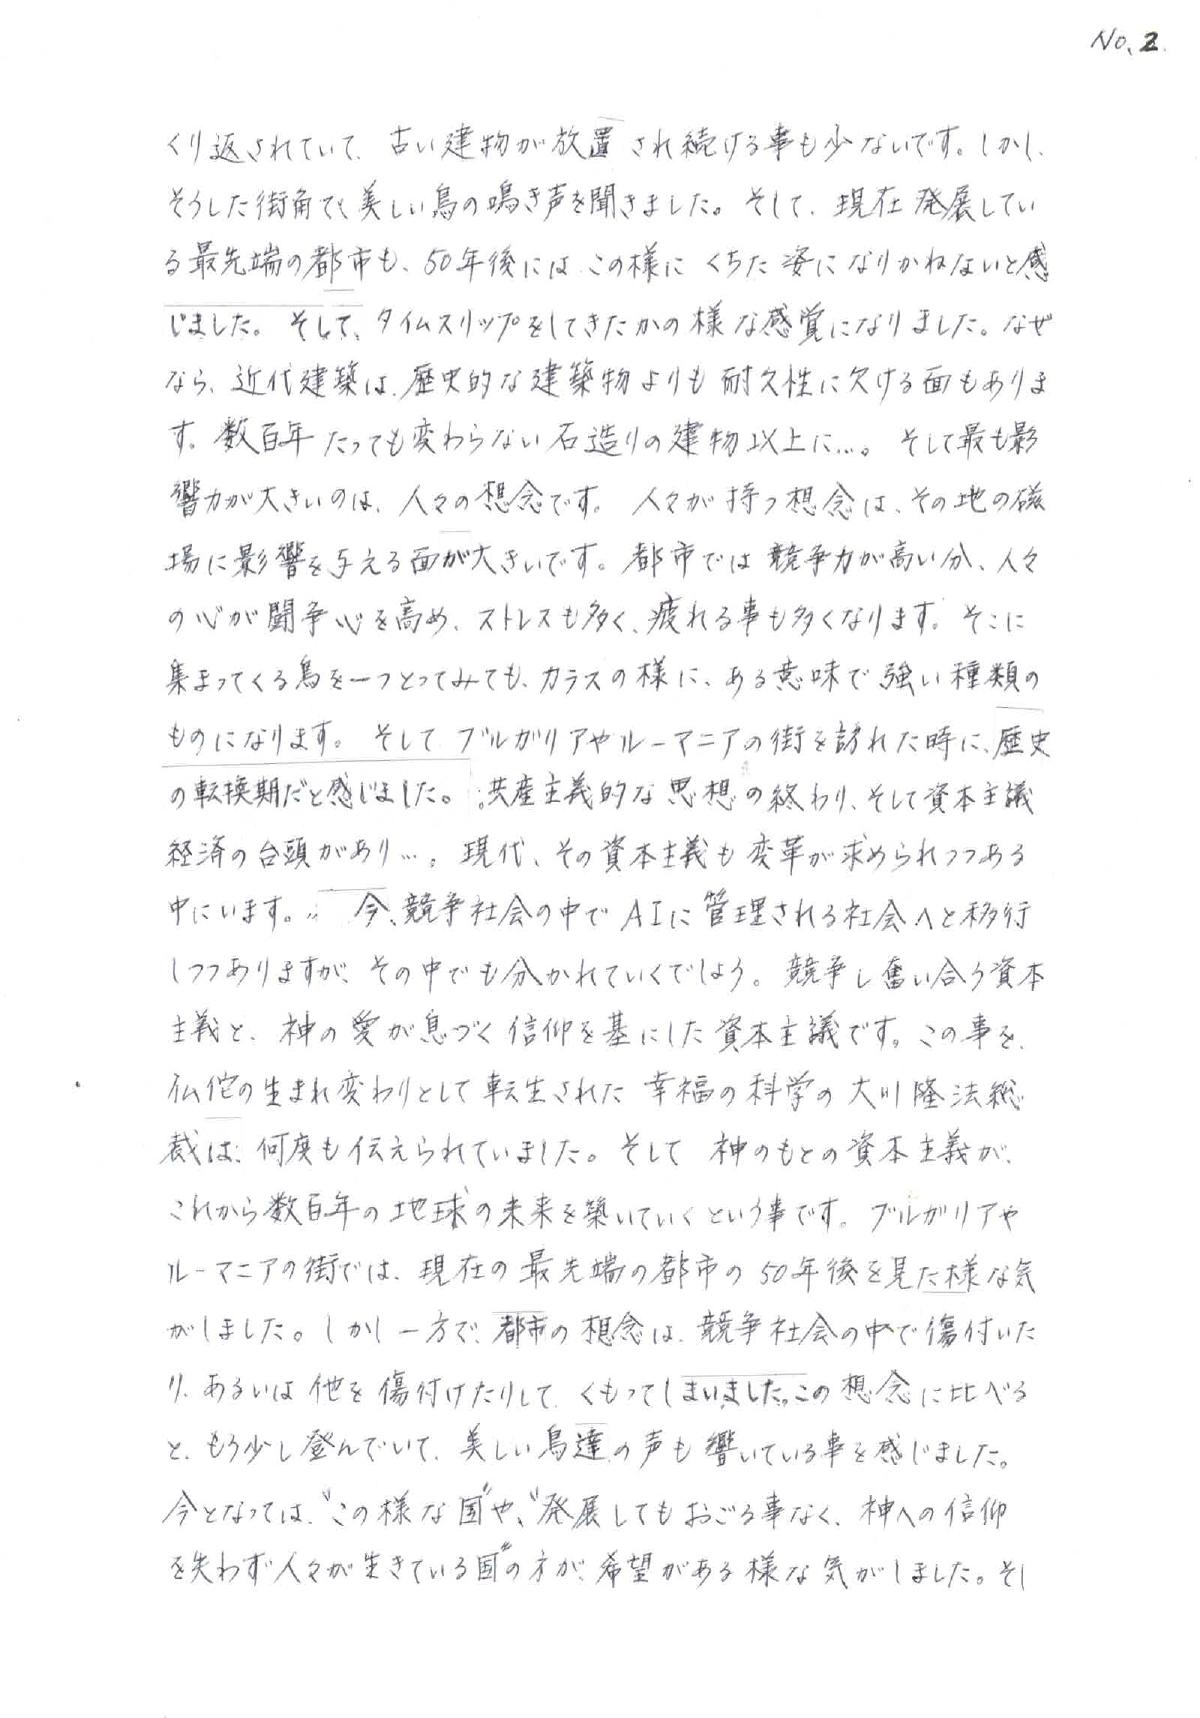 No. 2.
くり返されていて、古い建物が放置され続ける事も少ないです。しかし、
そうした街角で、美しい鳥の鳴き声を聞きました。そして、現在発展してい
る最先端の都市も、50年後には、この様にくちた姿になりかねないと感
じました。そして、タイムスリップをしてきたかの様な感覚になりました。なぜ
なら、近代建築は、歴史的な建築物よりも耐久性に欠ける面もありま
す。数百年たっても変わらない石造りの建物以上に…。そして最も影
響力が大きいのは、人々の想念です。人々が持つ想念は、その地の磁
場に影響を与える面が大きいです。都市では競争力が高い分、人々
の心が闘争心を高め、ストレスも多く、疲れる事も多くなります。そこに
集まってくる鳥を一つとってみても、カラスの様に、ある意味で強い種類の
ものになります。そしてブルガリアやルーマニアの街を訪れた時に、歴史
の転換期だと感じました。共産主義的な思想の終わり、そして資本主議
経済の台頭があり…。現代、その資本主義も変革が求められつつある
中にいます。今、競争社会の中でAIに管理される社会へと移行
しつつありますが、その中でも分かれていくでしょう。競争し奮い合う資本
主義と、神の愛が息づく信仰を基にした資本主議です。この事を、
仏陀の生まれ変わりとして転生された幸福の科学の大川隆法総
裁は、何度も伝えられていました。そして神のもとの資本主義が、
これから数百年の地球の未来を築いていくという事です。ブルガリアや
ルーマニアの街では、現在の最先端の都市の50年後を見た様な気
がしました。しかし一方で、都市の想念は、競争社会の中で傷付いた
り、あるいは他を傷付けたりして、くもってしまいました。この想念に比べる
と、もう少し登んでいて、美しい鳥達の声も響いている事を感じました。
今となっては、“この様な国”や、“発展してもおごる事なく、神への信仰
を失わず人々が生きている国”の方が、希望がある様な気がしました。そし